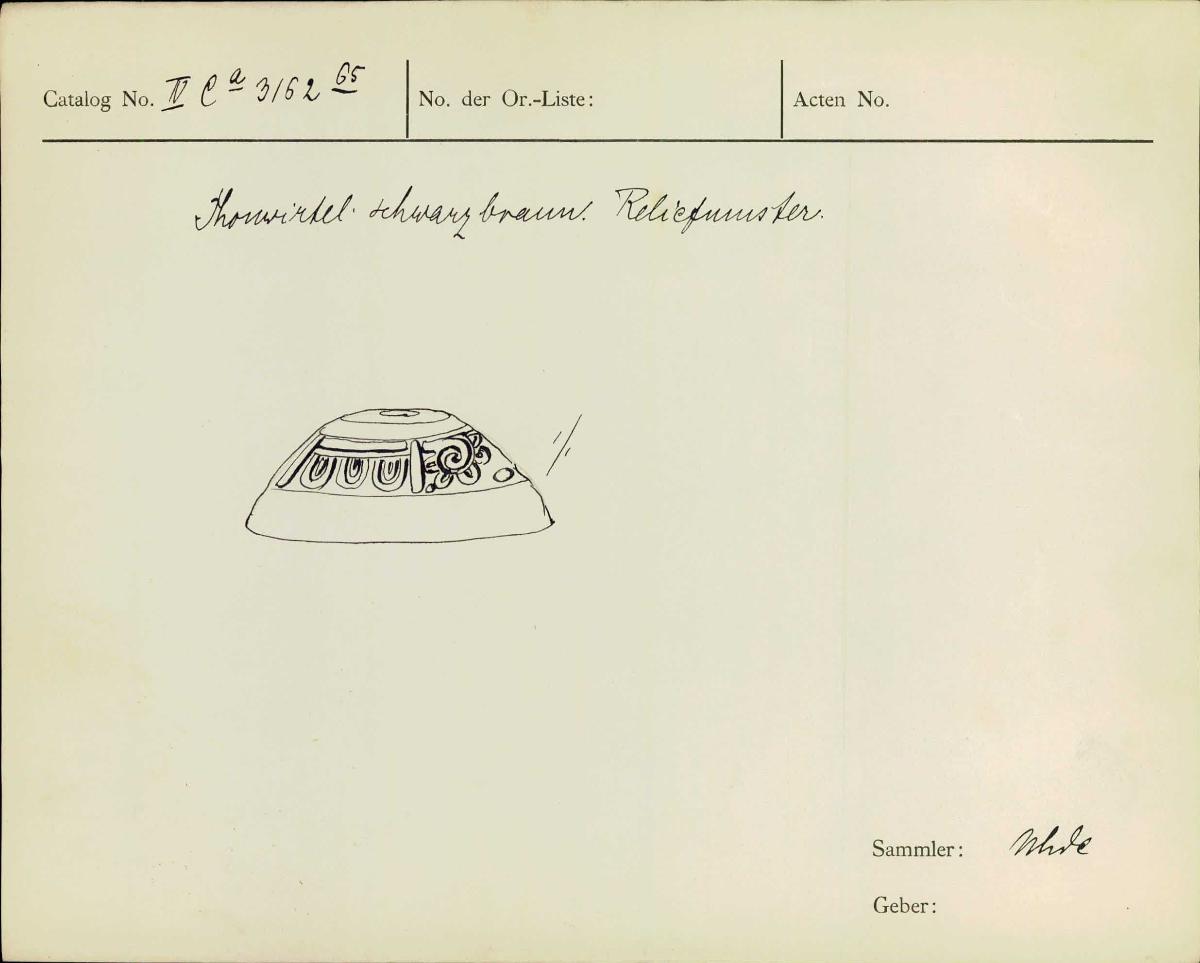 Catalog No. IV Ca 3162 65 No. der Or.-Liste: Acten No.
Thonwirtel. schwarzbraun. Reliefmuster.
1/1.
Sammler: Uhde
Geber: